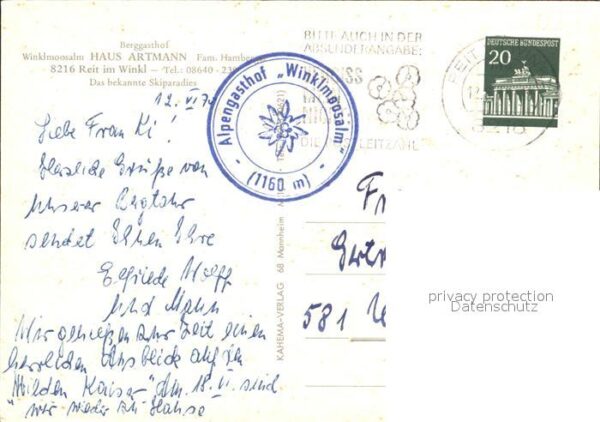 Berggasthof
Winklmoosalm HAUS ARTMANN Fam. Hamberger
8216 Reit im Winkl — Tel.: 08640 - 23
Das bekannte Skiparadies
12. VI 70
Liebe Frau Ki!
Herzliche Grüße von
unserer Bergtour
sendet Ihnen Ihre
Wolff
und Mann
Wir genießen zur Zeit einen
herrlichen Ausblick auf den
"Wilden Kaiser" Am 18. VI. sind
wir wieder zu Hause
Alpengasthof „Winklmoosalm"
- (1160 m) -
KAHEMA-VERLAG 68 Mannheim
BITTE AUCH IN DER
ABSENDERANGABE:
DIE LEITZAHL
DEUTSCHE BUNDESPOST
20
REIT
8216
Fr
581
privacy protection
Datenschutz